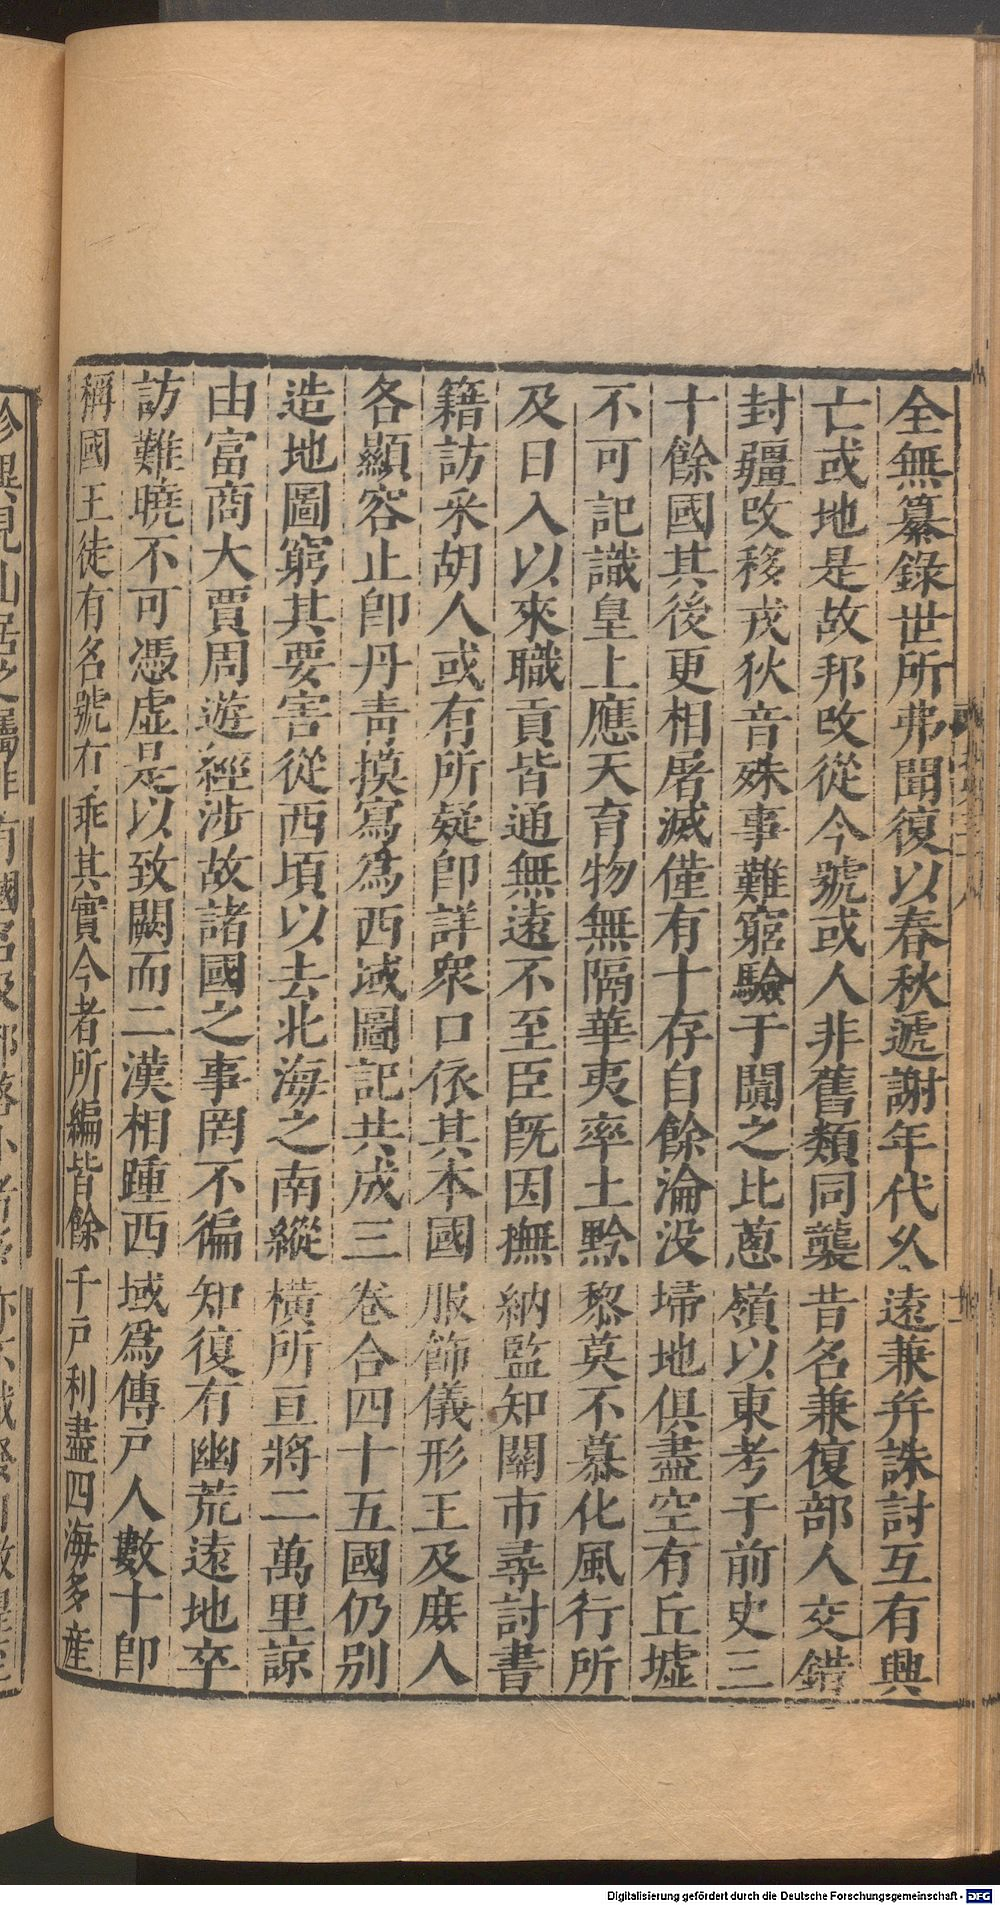 全無纂錄世所弗聞復以春秋遞謝年代久遠兼并誅討互有興
亡或地是故邦改從今號或人非舊類同襲昔名兼復部人交錯
封疆改移戎狄音殊事難窮驗于闐之比蔥嶺以東考于前史三
十餘國其後更相屠滅僅有十存自餘淪没埽地俱盡空有丘墟
不可記識皇上應天育物無隔華夷率土黔黎莫不慕化風行所
及日入以來職貢皆通無遠不至臣旣因撫納監知關市尋討書
籍訪采胡人或有所疑卽詳衆口依其本國服飾儀形王及庻人
各顯容止卽丹青摸寫爲西域圖記共成三卷合四十五國仍別
造地圖窮其要害從西頃以去北海之南縱橫所亘將二萬里諒
由富商大賈周遊經涉故諸國之事罔不徧知復有幽荒遠地卒
訪難曉不可憑虛是以致闕而二漢相踵西域爲傳戸人數十卽
稱國王徒有名號有乖其實今者所編皆餘千戸利盡四海多産
Digitalisierung gefördert durch die Deutsche Forschungsgemeinschaft - DFG